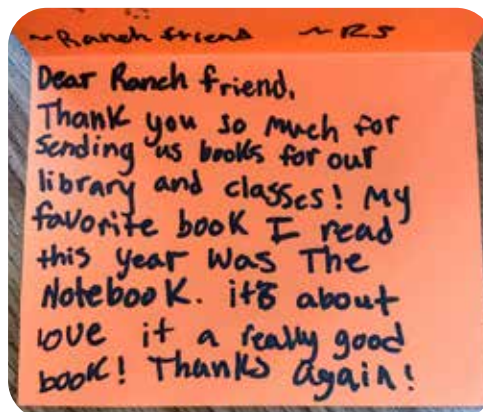 ~Ranch friend ~RS
Dear Ranch friend,
Thank you so much for
sending us books for our
library and classes! My
favorite book I read
this year was The
Notebook. it's about
love it a really good
book! Thanks again!